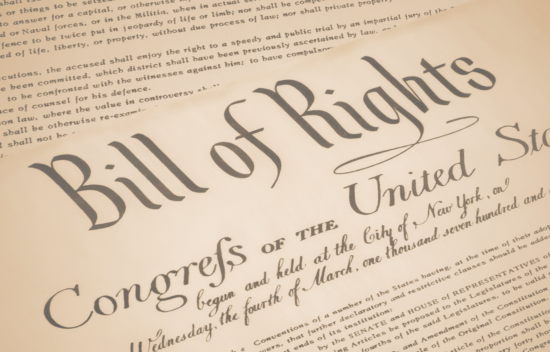 or things to be seized
to answer for a capital, or otherwise
or Naval forces, or in the Militia, when in actual
offence to be twice put in jeopardy of life or limb; nor shall be
of life, liberty, or property, without due process of law; nor shall private property
the accused shall enjoy the right to a speedy and public trial by an impartial jury of the
been committed, which district shall have been previously ascertained by law,
to be confronted with the witnesses against him; to have
of counsel for his defence.
law, where the value in controversy
shall be otherwise
shall not be
Bill of Rights
Congreſs OF THE United
begun and held at the City of New York, on
Wednesday, the fourth of March, one thousand seven hundred and
Conventions of a number of the States having, at the time of their
that further declaratory and restrictive clauses should be
ends of its institution:
by the SENATE and HOUSE of REPRESENTATIVES of
Articles be proposed to the Legislatures of the
of the said Legislatures, to be valid
and Amendment of the Constitution
of the Original Constitution.
of the Constitution